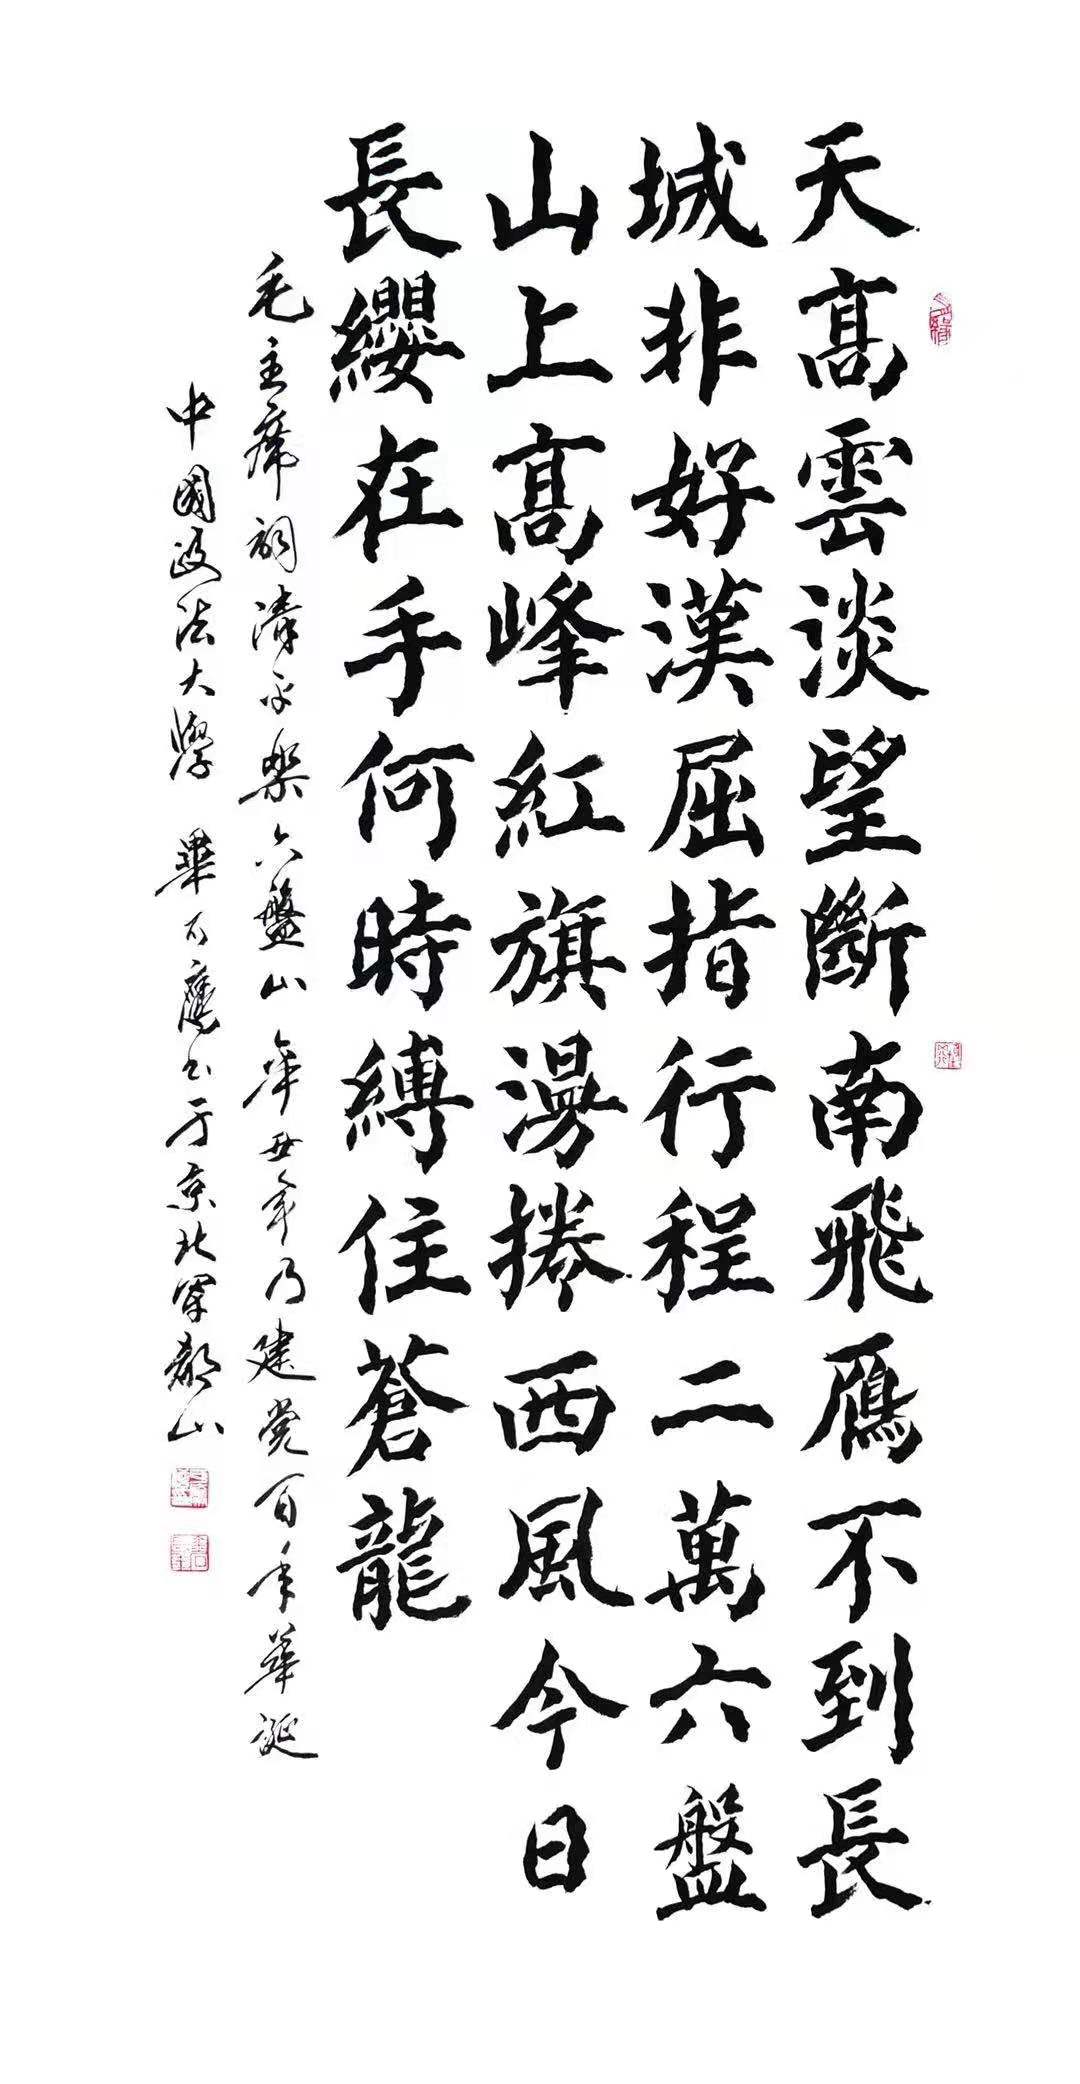 天高雲淡望斷南飛雁不到長
城非好漢屈指行程二萬六盤
山上高峰紅旗漫捲西風今日
長纓在手何時縛住蒼龍
毛主席詞清平樂六盤山辛丑年乃建党百年華誕
中國政法大學 畢石鷹書于京北軍都山